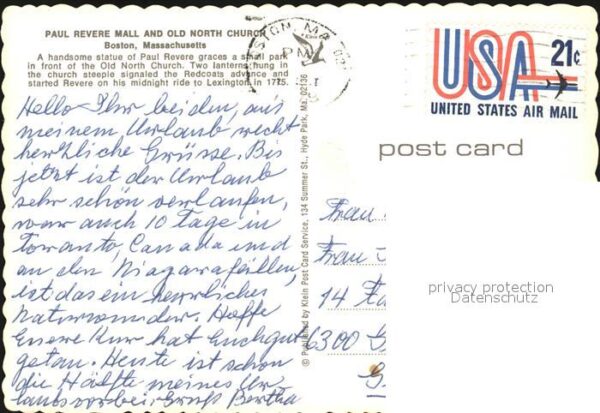 PAUL REVERE MALL AND OLD NORTH CHURCH
Boston, Massachusetts
A handsome statue of Paul Revere graces a small park
in front of the Old North Church. Two lanterns hung in
the church steeple signaled the Redcoats advance and
started Revere on his midnight ride to Lexington in 1775.
Hello Ihr beiden, aus
meinem Urlaub recht
herzliche Grüsse. Bis
jetzt ist der Urlaub
sehr schön verlaufen,
war auch 10 Tage in
Toranto, Canada und
an den Niagarafällen,
ist das ein herrliches
Naturwunder. Hoffe
Euere Kur hat Euch gut
getan. Heute ist schon
die Hälfte meines Ur-
laubs vorbei. Gruß Bertha
© Published by Klein Post Card Service, 134 Summer St., Hyde Park, Ma. 02136
BOSTON, MA
PM
USA 21c
UNITED STATES AIR MAIL
post card
Frau
Frau
14
6300 G
privacy protection
Datenschutz